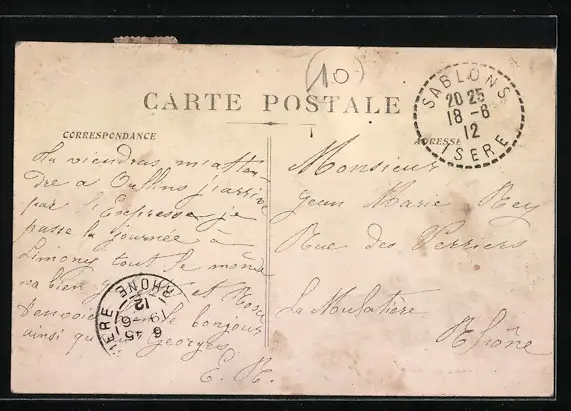 (10)
CARTE POSTALE
CORRESPONDANCE
ADRESSE
SABLONS
20 25
18 - 6
12
ISERE
Tu viendras m'atten
dre a Oullins j'arrive
par l'Expresse je
passe la journée à
Limony tout le monde
va bien et
t'envoie le bonjour
ainsi que Georges
E. R.
Monsieur
Jean Marie Rey
Rue des Verriers
La Mulatière
Rhône
RHONE
6 45
19 - 6
12